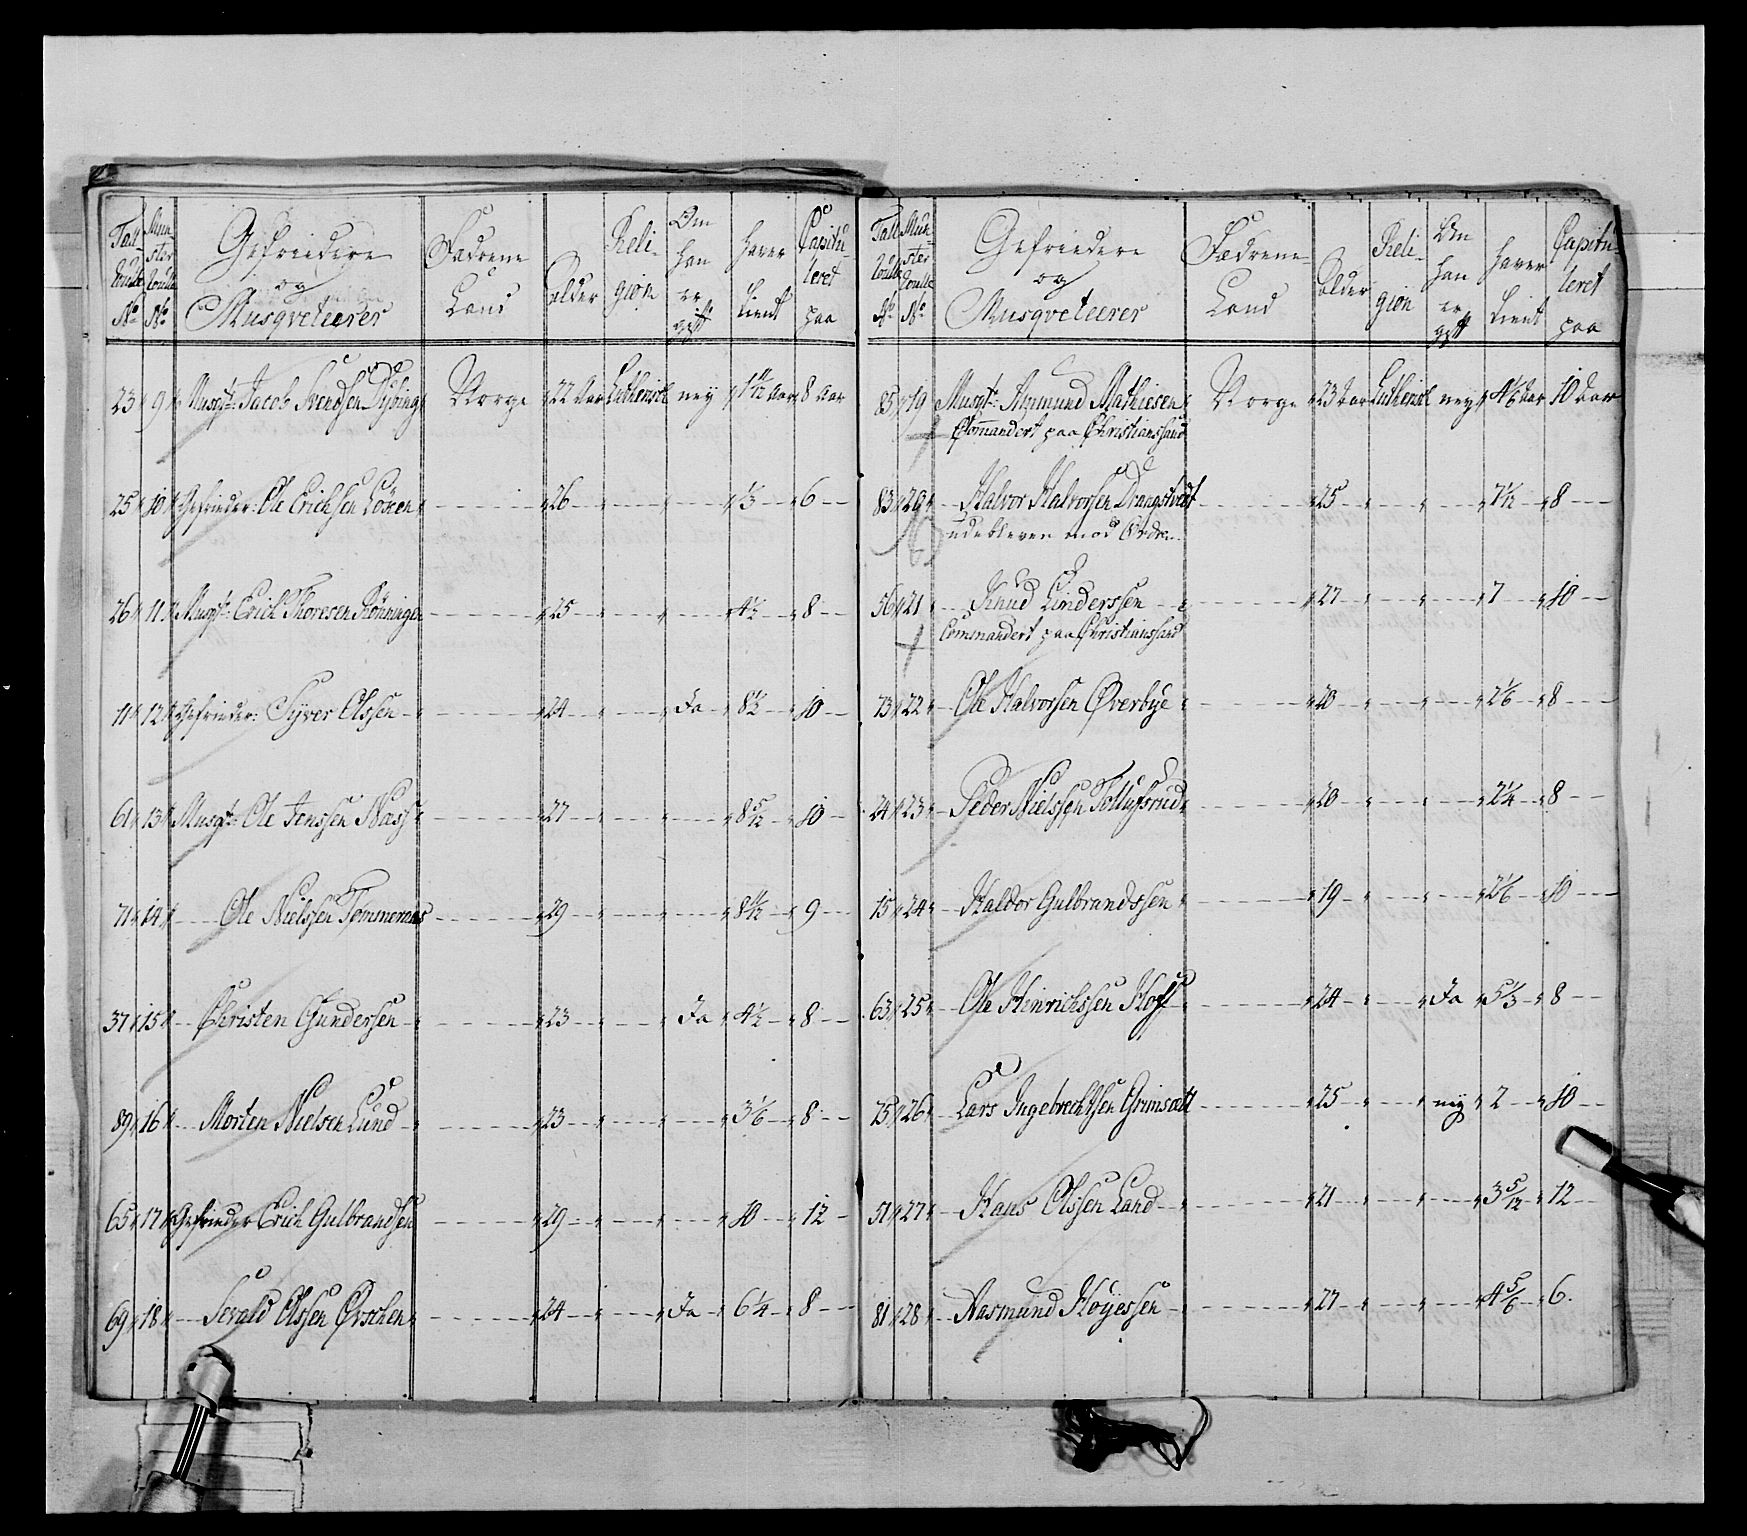 Tall Roulle No | Mun- ster Roulle No | Gefriedere og Musqveteerer | Fædrene Land | Alder | Reli- gion | Om han er gift | haver tient | Capitu- leret paa
23 | 9 | Musqt: Jacob Svendsen Dybing | Norge | 22 Aar | Luthersk | ney | 1 11/12 Aar | 8 Aar
25 | 10 | Gefrieder: Ole Erichsen | - | 26 | - | - | 1/3 | 6
26 | 11 | Musqt: Erich Thoresen Rönningen | - | 25 | - | - | 4 1/2 | 8
11 | 12 | Gefrieder: Syver Olssen | - | 24 | - | Ja | 8 1/2 | 10
61 | 13 | Musqt: Ole Jenssen Næss | - | 27 | - | - | 8 5/12 | 10
71 | 14 | Ole Nielssen Tømmeraas | - | 29 | - | - | 8 11/12 | 9
37 | 15 | Christen Gundersen | - | 23 | - | Ja | 4 1/2 | 8
89 | 16 | Morten Nielsen Lund | - | 23 | - | - | 3 1/6 | 8
65 | 17 | Gefrieder Erich Gulbrandsen | - | 29 | - | - | 10 | 12
69 | 18 | Sevald Olssen | - | 24 | - | Ja | 6 1/4 | 8
Tall Roulle No | Mun- ster Roulle No | Gefriedere og Musqveteerer | Fædrene Land | Alder | Reli- gion | Om han er gift | haver tient | Capitu- leret paa
85 | 19 | Musqt: Amund Mathiesen | Norge | 23 Aar | Luthersk | ney | 4 1/6 Aar | 10 Aar
Commandert paa Christianssand
83 | 20 | Halvor Halvorsen Drangstvedt | - | 25 | - | - | 7 1/2 | 8
udebleven mod Ordre
56 | 21 | Knud Linderssen | - | 27 | - | - | 7 | 10
Commandert paa Christianssand
73 | 22 | Ole Halvorsen Øverbye | - | 20 | - | - | 2 1/6 | 8
24 | 23 | Peder Nielssen Tollufsrud | - | 20 | - | - | 2 1/4 | 8
15 | 24 | Haldor Gulbrandssen | - | 19 | - | - | 2 1/6 | 10
63 | 25 | Ole Hinrichssen Hoff | - | 24 | - | Ja | 5 1/3 | 8
75 | 26 | Lars Ingebrechtsen Grimsætt | - | 25 | - | ney | 2 | 10
51 | 27 | Hans Olssen Land | - | 21 | - | - | 3 5/12 | 12
81 | 28 | Aasmund Høyessen | - | 27 | - | - | 4 5/6 | 6